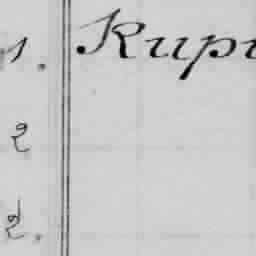 1. Kupr
2
2.